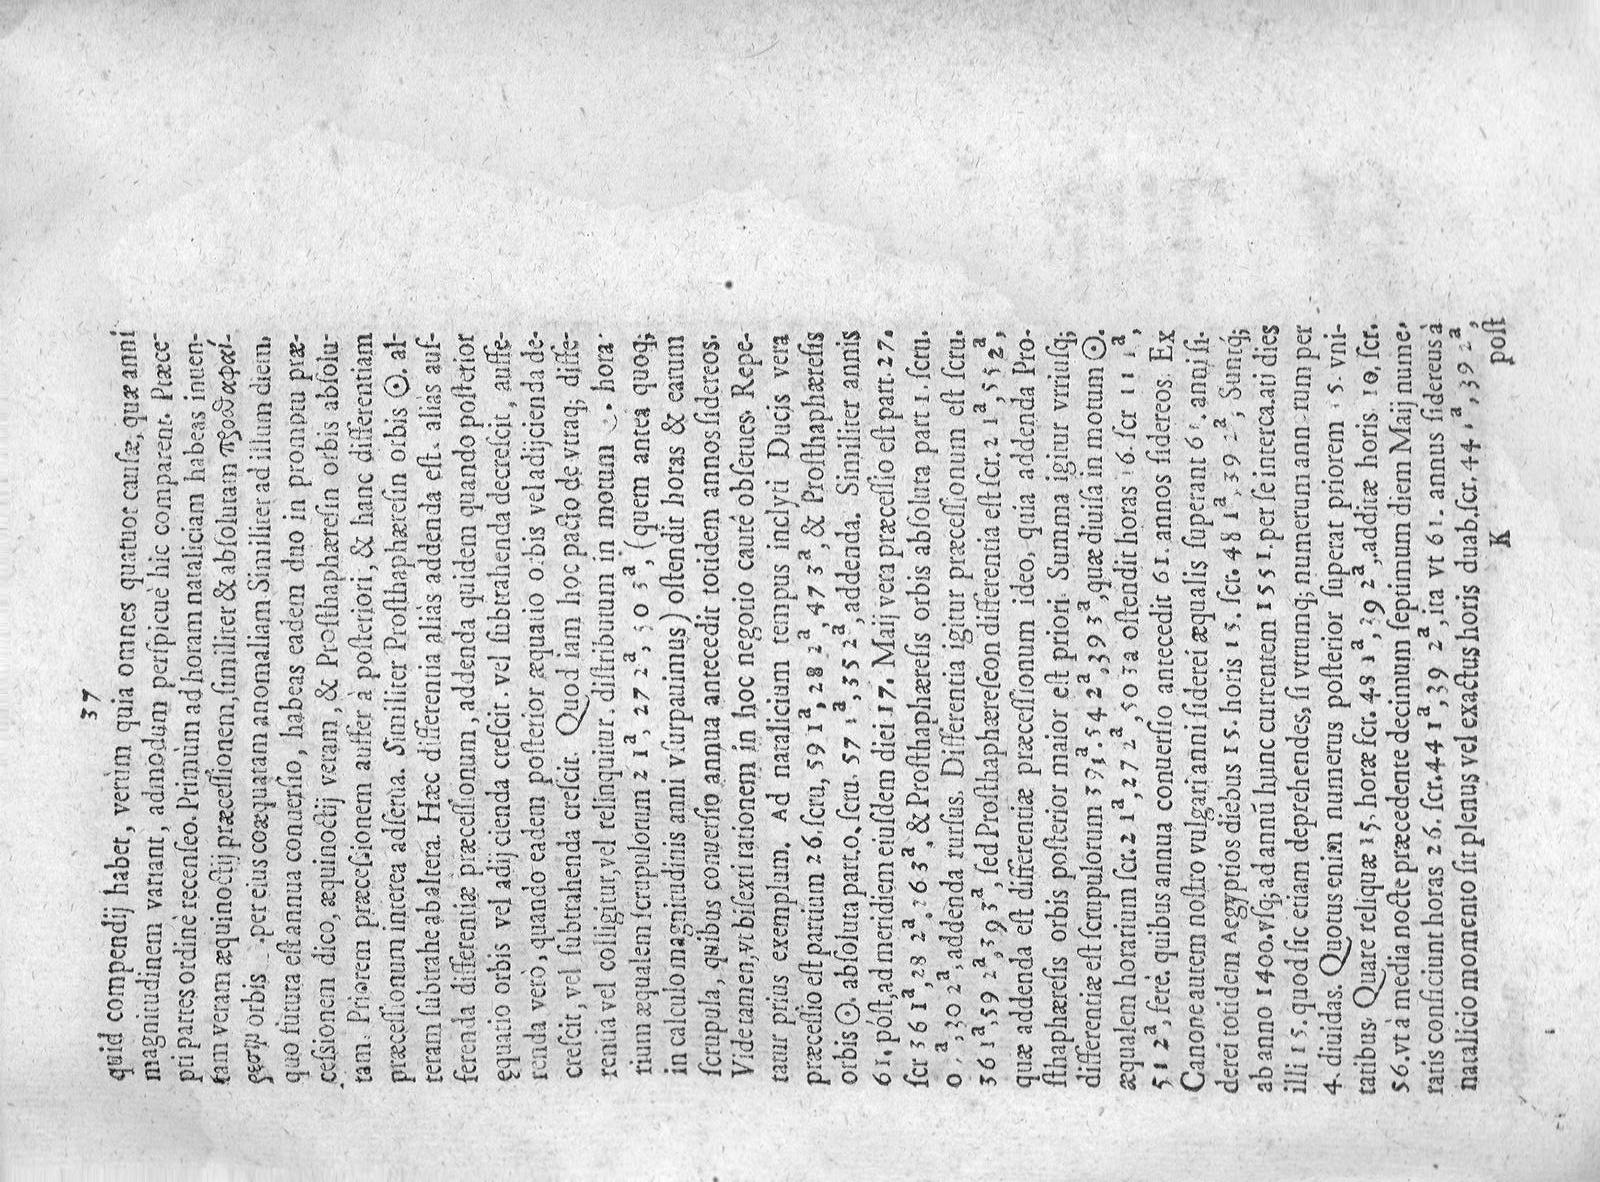 37
quid compendij habet, verùm quia omnes quatuor cauſæ, quæ anni
magnitudinem variant, admodùm perſpicuè hic comparent. Præce-
pti partes ordinè recenſeo. Primùm ad horam nataliciam habeas inuen-
tam veram æquinoctij præceſſionem, ſimiliter & abſolutam προσθαφαί-
ρεσιν orbis per eius coæquatam anomaliam Similiter ad illum diem,
quo futura eſt annua conuerſio, habeas eadem duo in promptu præ-
ceſsionem dico, æquinoctij veram, & Proſthaphæreſin orbis abſolu-
tam. Priorem præceſsionem auffer à poſteriori, & hanc differentiam
præceſſionum interea adſerua. Similiter Proſthaphæreſin orbis ☉. al-
teram ſubtrahe ab altera. Hæc differentia aliàs addenda eſt, aliàs auf-
ferenda differentiæ præceſſionum, addenda quidem quando poſterior
equatio orbis vel adijcienda creſcit, vel ſubtrahenda decreſcit, auffe-
renda verò, quando eadem poſterior æquatio orbis vel adijcienda de-
creſcit, vel ſubtrahenda creſcit. Quod iam hoc pacto de vtraq; diffe-
rentia vel colligitur, vel relinquitur, diſtributum in motum . hora-
rium æqualem ſcrupulorum 2 1ª, 27 2ª, 50 3ª, (quem antea quoq;
in calculo magnitudinis anni vſurpauimus) oſtendit horas & earum
ſcrupula, quibus conuerſio annua antecedit totidem annos ſidereos.
Vide tamen, vt biſexti rationem in hoc negotio cauté obſerues. Repe-
tatur prius exemplum. Ad natalicium tempus inclyti Ducis vera
præceſſio eſt partium 26. ſcru, 59 1ª, 28 2ª, 47 3ª, & Proſthaphæreſis
orbis ☉. abſoluta part. 0. ſcru. 57 1ª, 35 2ª, addenda. Similiter annis
61. póſt, ad meridiem eiuſdem diei 17. Maij vera præceſſio eſt part. 27.
ſcr 36 1ª, 28 2ª, 26 3ª, & Proſthaphæreſis orbis abſoluta part 1. ſcru.
0 1ª, 30 2ª, addenda rurſus. Differentia igitur præceſſionum eſt ſcru.
36 1ª, 59 2ª, 39 3ª, ſed Proſthaphæreſeon differentia eſt ſcr. 2 1ª, 55 2ª,
quæ addenda eſt differentiæ præceſſionum ideo, quia addenda Pro-
ſthaphæreſis orbis poſterior maior eſt priori. Summa igitur vtriuſq;
differentiæ eſt ſcrupulorum 39 1ª. 54 2ª, 39 3ª, quæ diuiſa in motum ☉.
æqualem horarium ſcr. 2 1ª, 27 2ª, 50 3a oſtendit horas 16. ſcr 11 1ª,
51 2ª, ferè. quibus annua conuerſio antecedit 61. annos ſidereos. Ex
Canone autem noſtro vulgari anni ſiderei æqualis ſuperant 61. anni ſi-
derei totidem Aegyptios diebus 15. horis 15. ſcr. 48 1ª, 39 2ª, Suntq́;
ab anno 1400. vſq; ad annũ hunc currentem 1551. per ſe intercalati dies
illi 15. quod ſic etiam deprehendes, ſi vtrumq; numerum annorum per
4. diuidas. Quotus enim numerus poſterior ſuperat priorem 15. vni-
tatibus. Quare reliquæ 15. horæ ſcr. 48 1ª, 39 2ª, additæ horis. 10, ſcr.
56. vt à media nocte præcedente decimum ſeptimum diem Maij nume-
ratis conficiunt horas 26. ſcr. 44 1ª, 39 2ª, ita vt 61. annus ſidereus à
natalicio momento ſit plenus vel exactus horis duab. ſcr. 44 1ª, 39 2ª,
K poſt